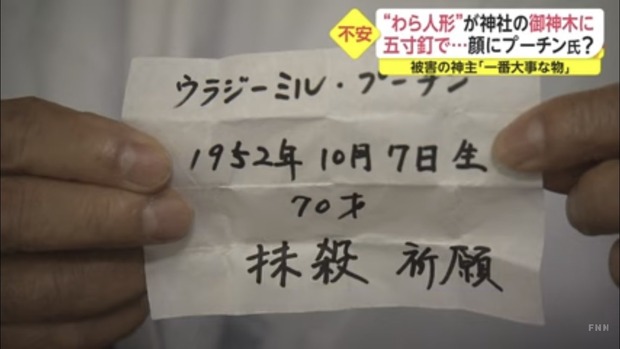 不安
“わら人形”が神社の御神木に
五寸釘で…顔にプーチン氏?
被害の神主「一番大事な物」
ウラジーミル・プーチン
1952年10月7日生
70才
抹殺 祈願
FNN